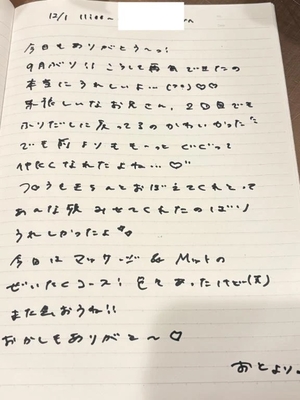 12/1 11:00〜
今日もありがとう〜っ!
9月ぶり!! こうして再会できたの
本当にうれしいよ...(^^)♡♡
来て いなお兄さん、2回目でも
ふりだしに戻ってるのかわいかった
でも前よりももーっとぐぐって
仲良くなれたよね...♡
プロフもちゃんとおぼえてくれとって
あんな顔 みせてくれたの
うれしかったよ
今日はマッサージ & Mットの
ぜいたくコース! 色々あったけど(笑)
また会おうね!!
おかしもありがと〜♡
おとより